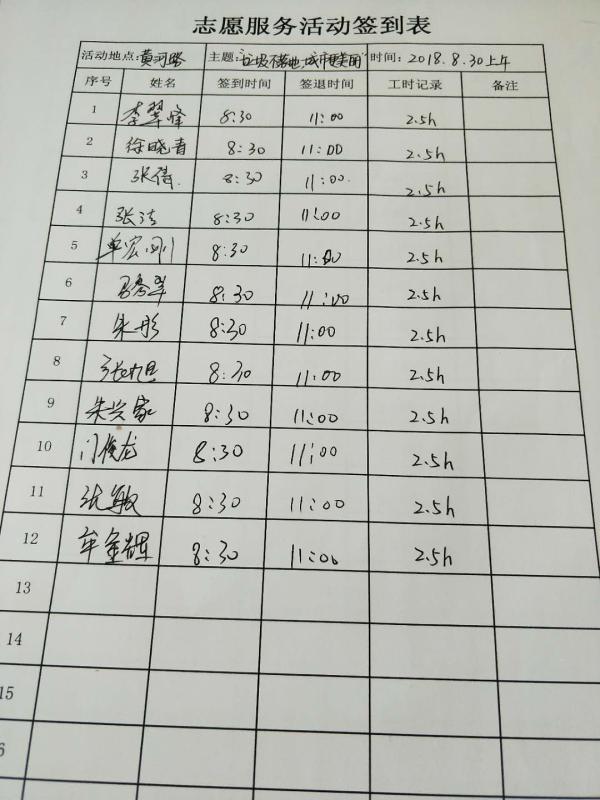 志愿服务活动签到表
活动地点：黄河路 主题："垃圾不落地，城市更美丽" 时间：2018.8.30上午
序号 姓名 签到时间 签退时间 工时记录 备注
1 李翠峰 8:30 11:00 2.5h
2 徐晓青 8:30 11:00 2.5h
3 张倩 8:30 11:00 2.5h
4 张洁 8:30 11:00 2.5h
5 单宏刚 8:30 11:00 2.5h
6 8:30 11:00 2.5h
7 朱彤 8:30 11:00 2.5h
8 张旭 8:30 11:00 2.5h
9 朱兴家 8:30 11:00 2.5h
10 门俊龙 8:30 11:00 2.5h
11 沈敏 8:30 11:00 2.5h
12 牟金辉 8:30 11:00 2.5h
13
14
15
6